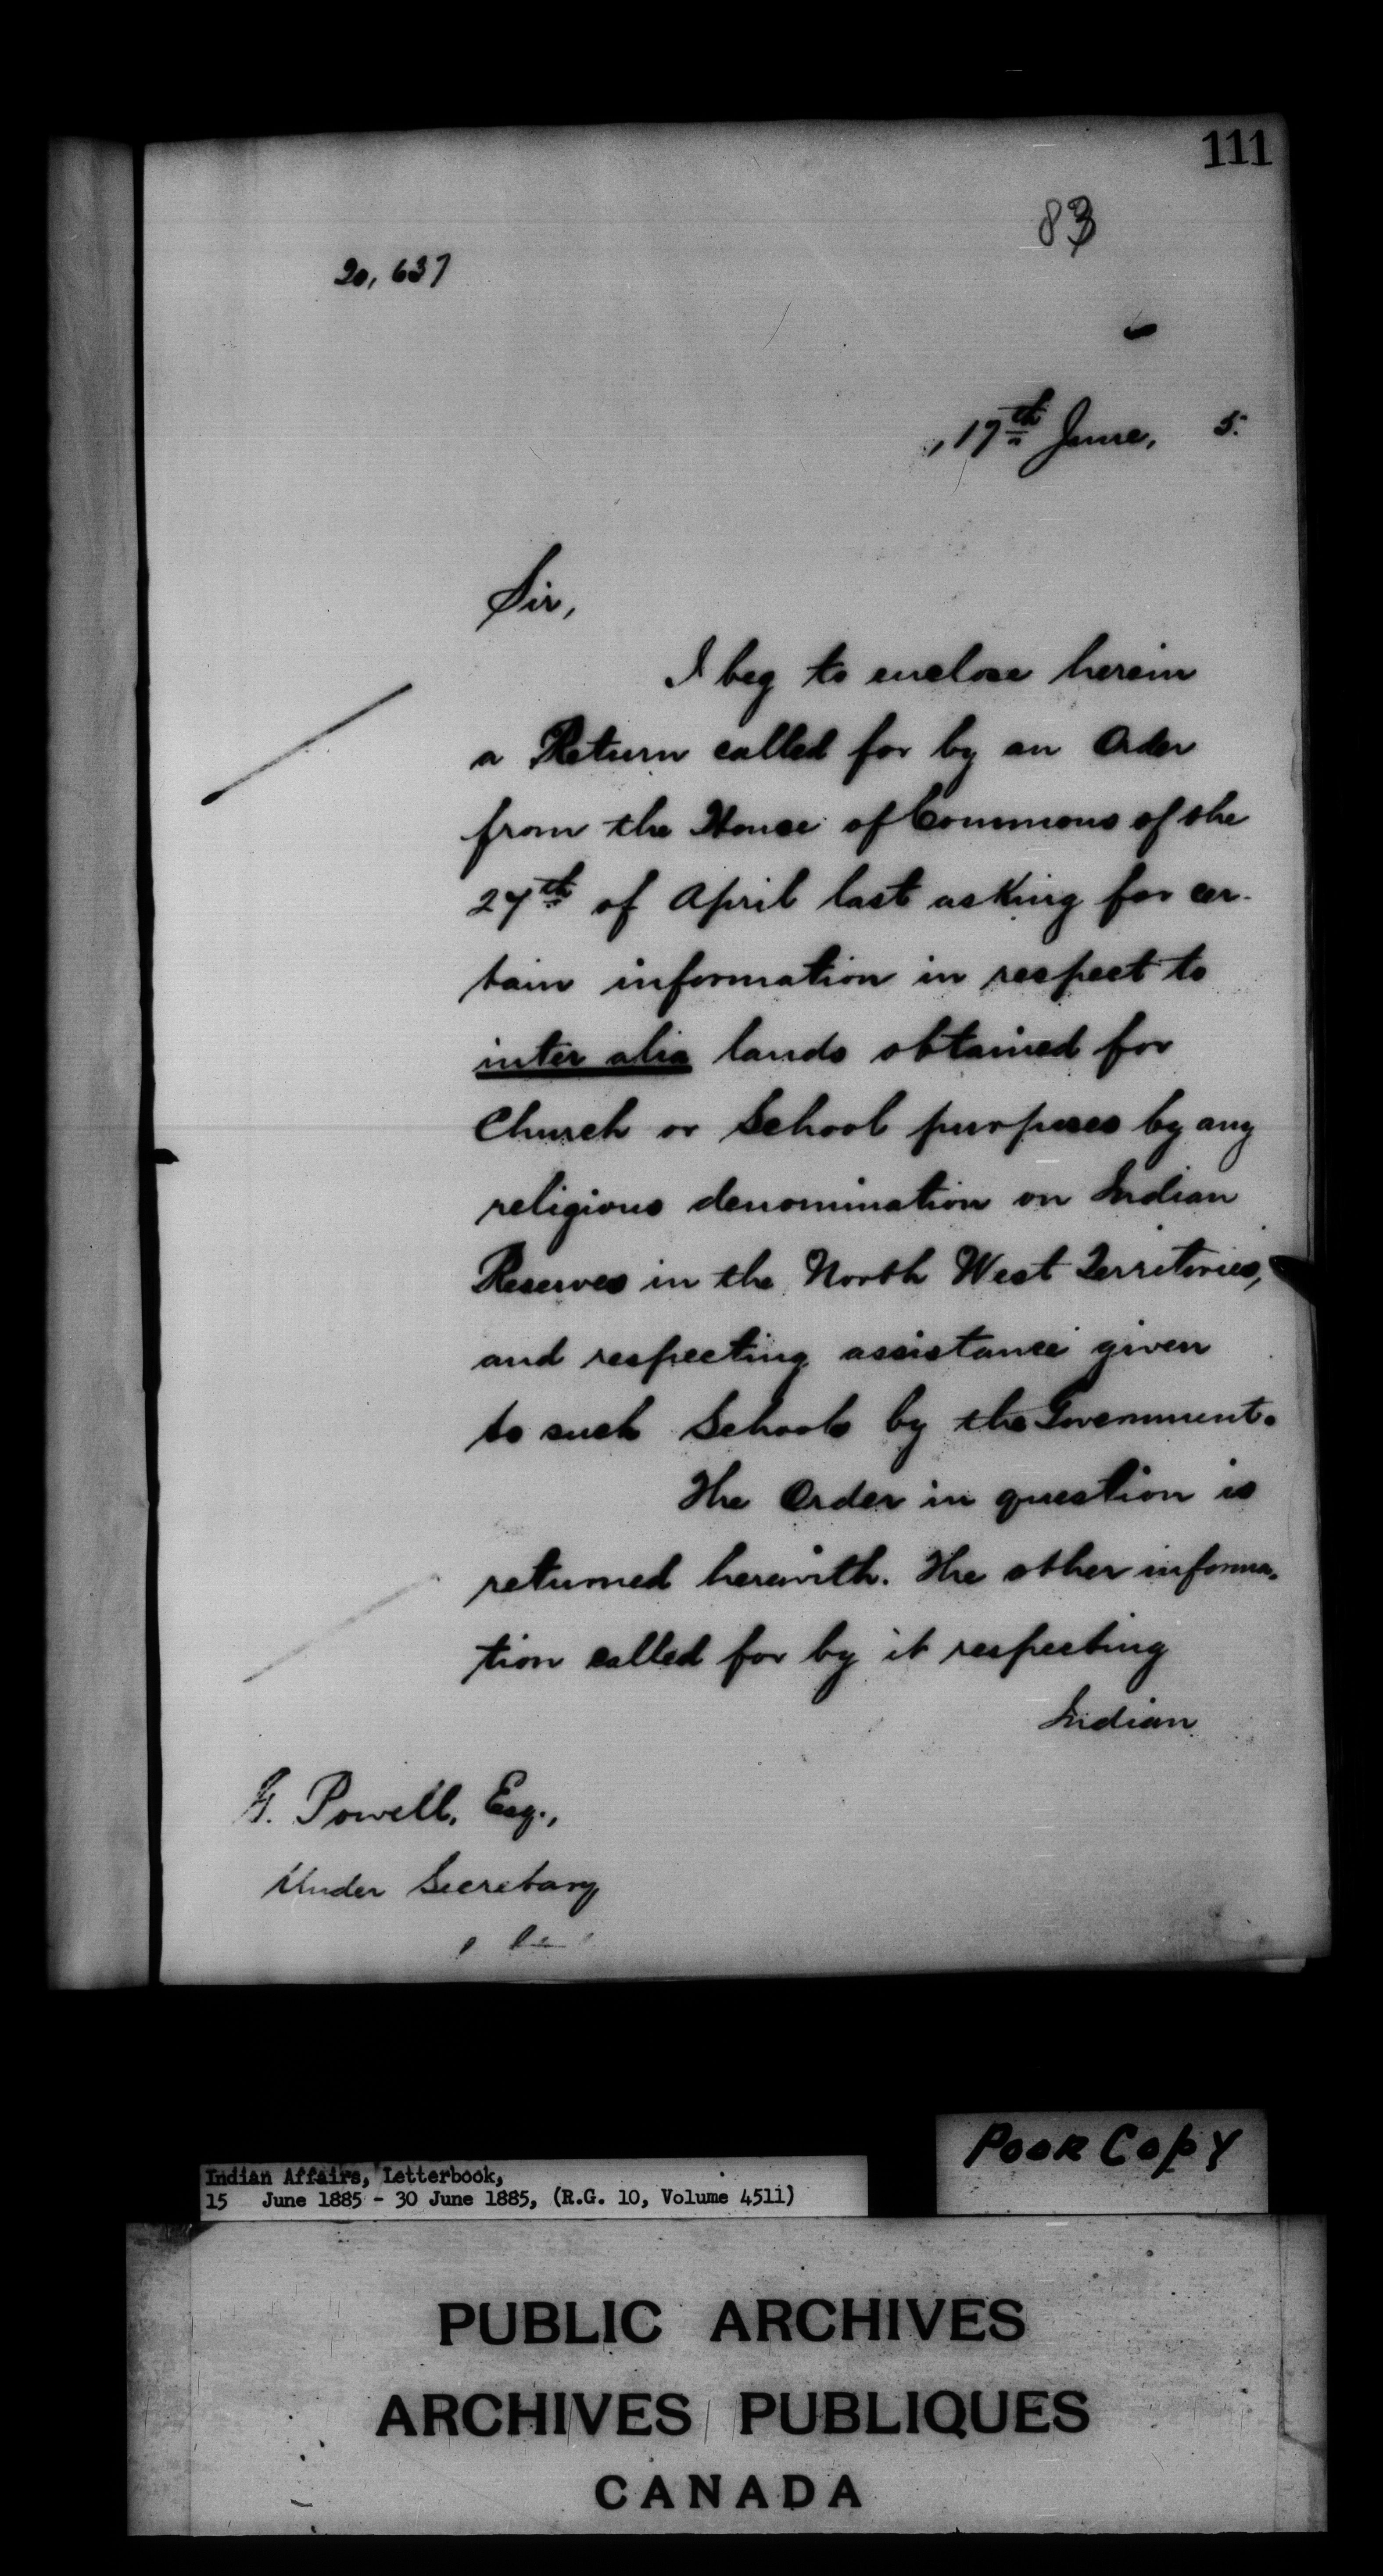 111
83
20,637
, 17th June, 5.
Sir,
I beg to enclose herein
a Return called for by an Order
from the House of Commons of the
27th of April last asking for cer-
tain information in respect to
inter alia lands obtained for
Church or School purposes by any
religious denomination on Indian
Reserves in the North West Territories,
and respecting assistance given
to such Schools by the Government.
The Order in question is
returned herewith. The other informa-
tion called for by it respecting
Indian
G. Powell, Esq.,
Under Secretary
Poor Copy
Indian Affairs, Letterbook,
15 June 1885 - 30 June 1885, (R.G. 10, Volume 4511)
PUBLIC ARCHIVES
ARCHIVES PUBLIQUES
CANADA